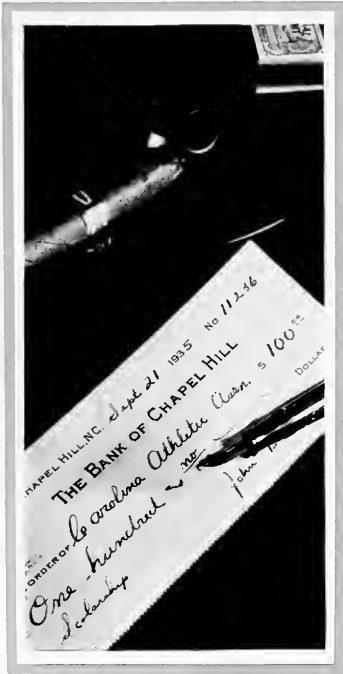 CHAPEL HILL, N.C. Sept 21 1935 No 11236
THE BANK OF CHAPEL HILL
ORDER OF Carolina Athletic Assn. $ 100 00
One hundred no DOLLAR
Scolarship John